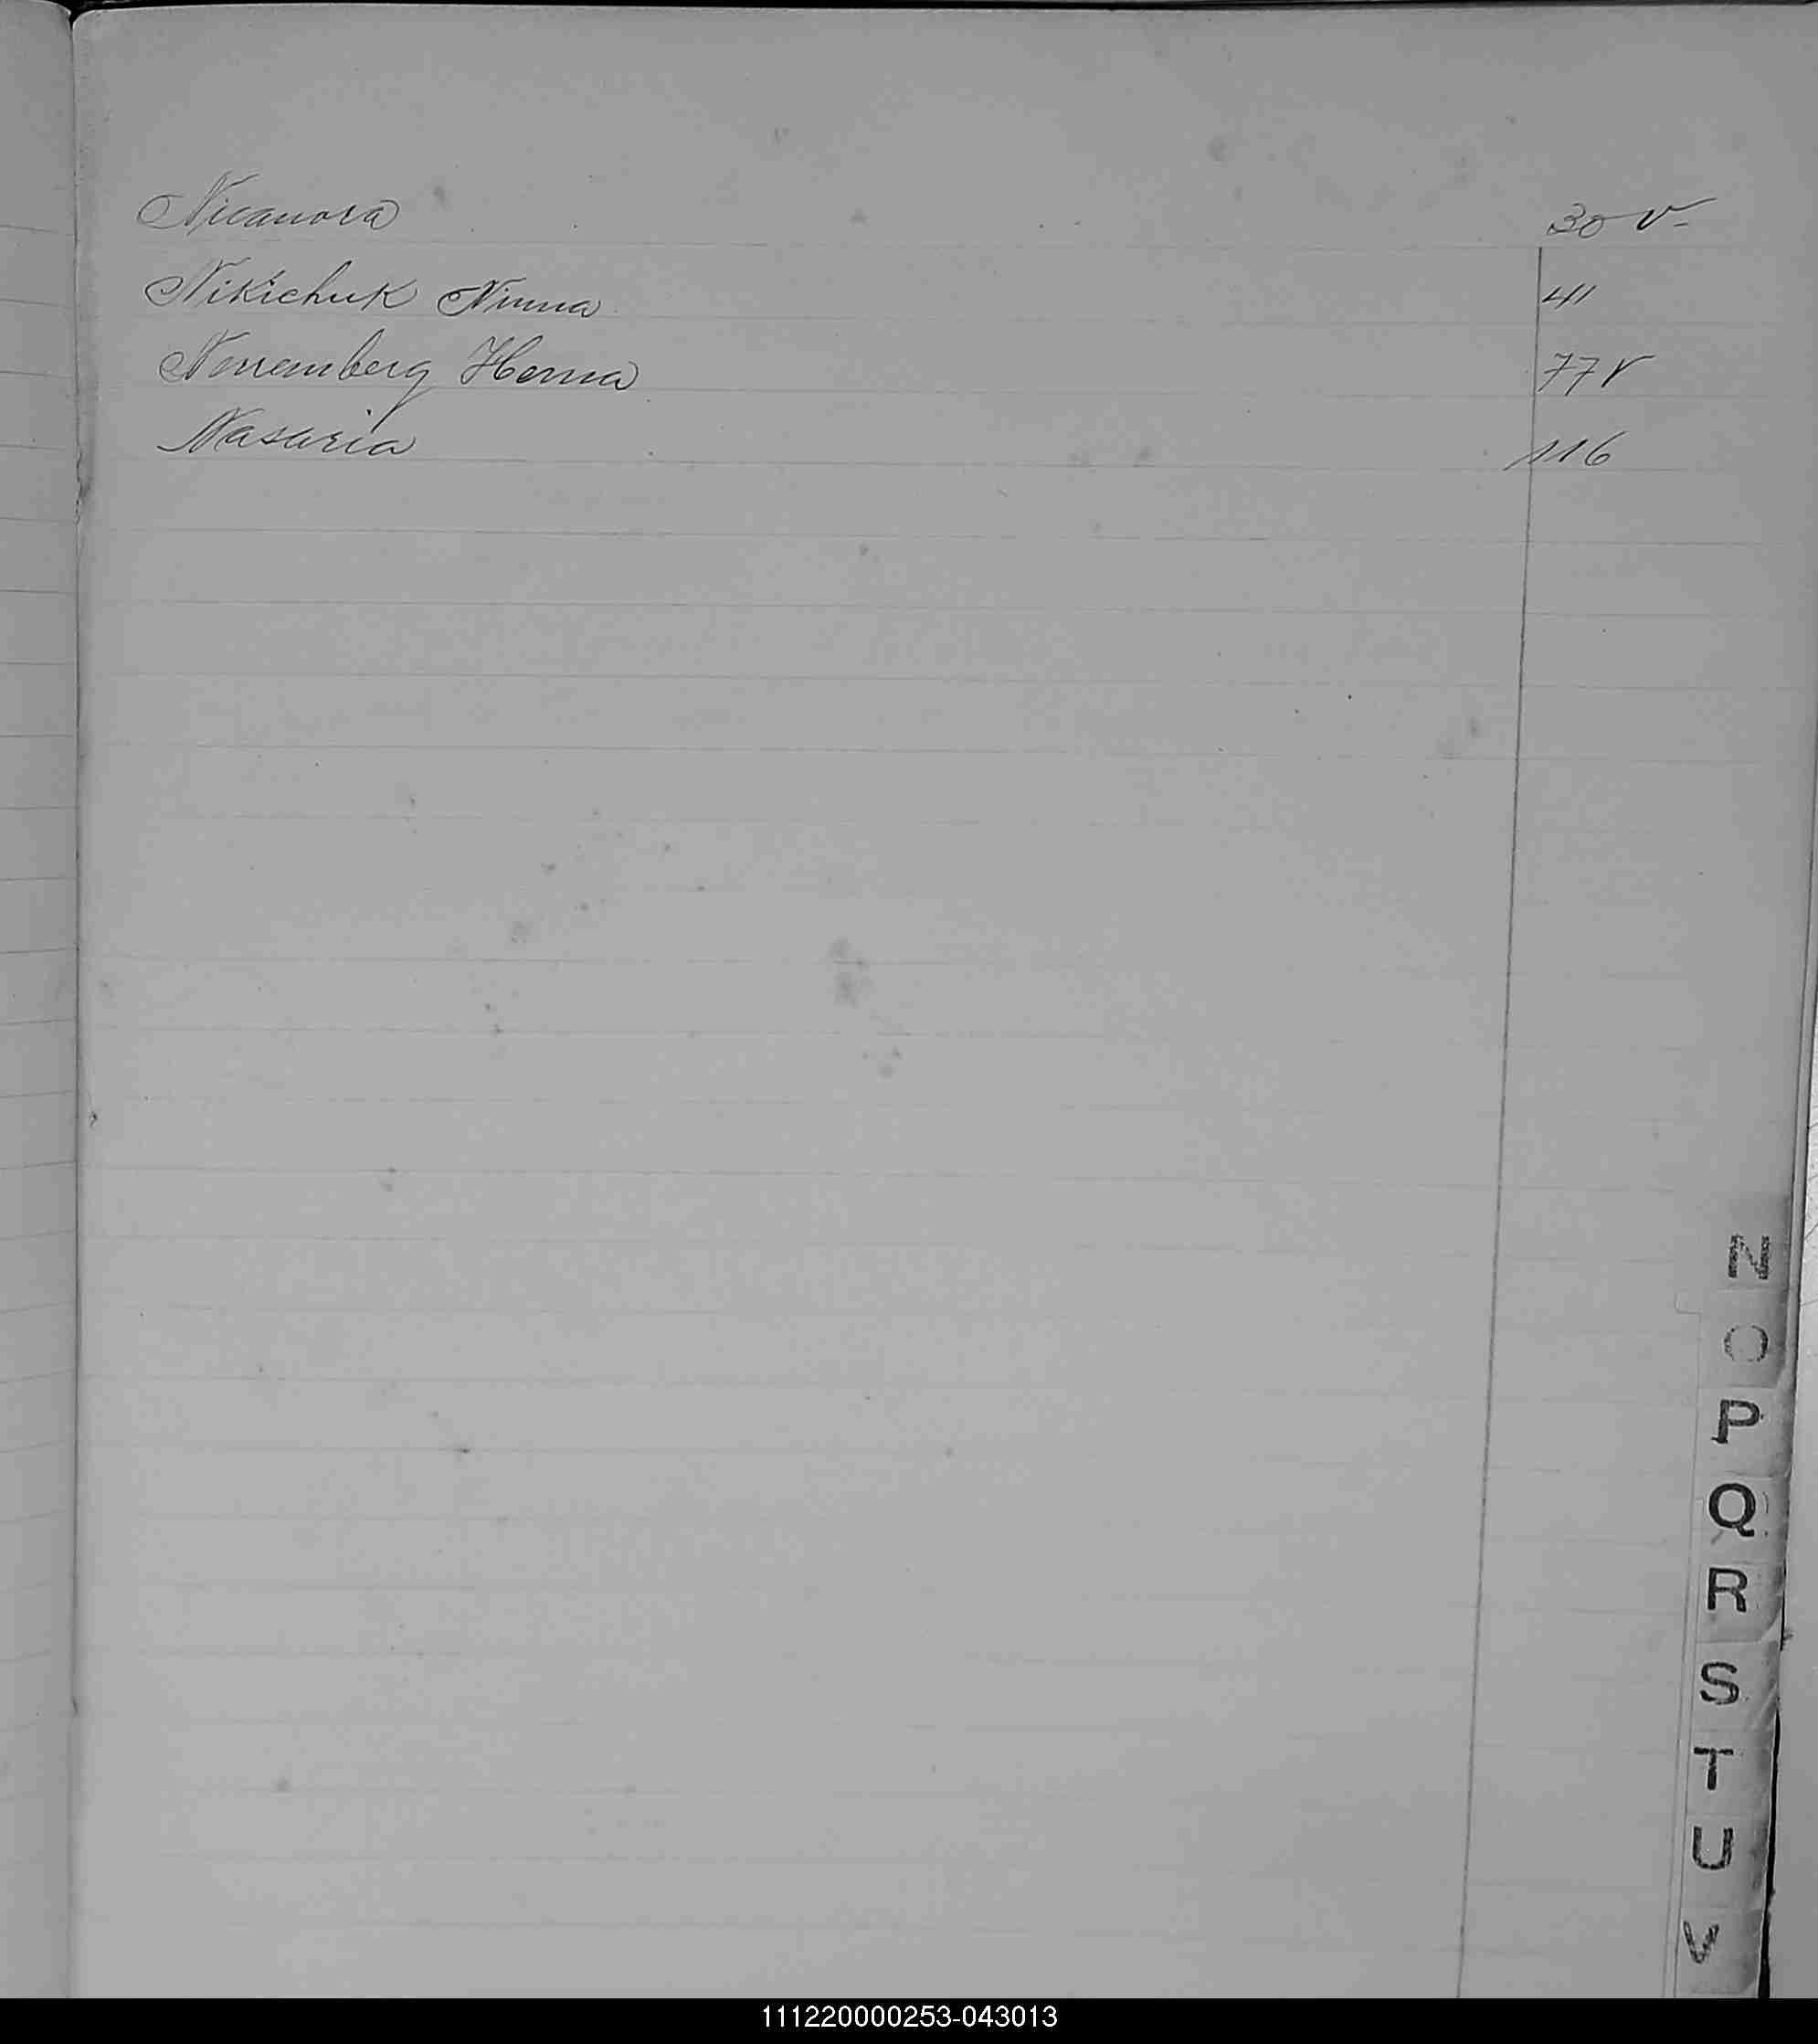 Nicanora 30 v-
Nikichuk Ninna 41
Nurremberg Herna 77 v
Nasaria 116
N
O
P
Q
R
S
T
U
V
111220000253-043013